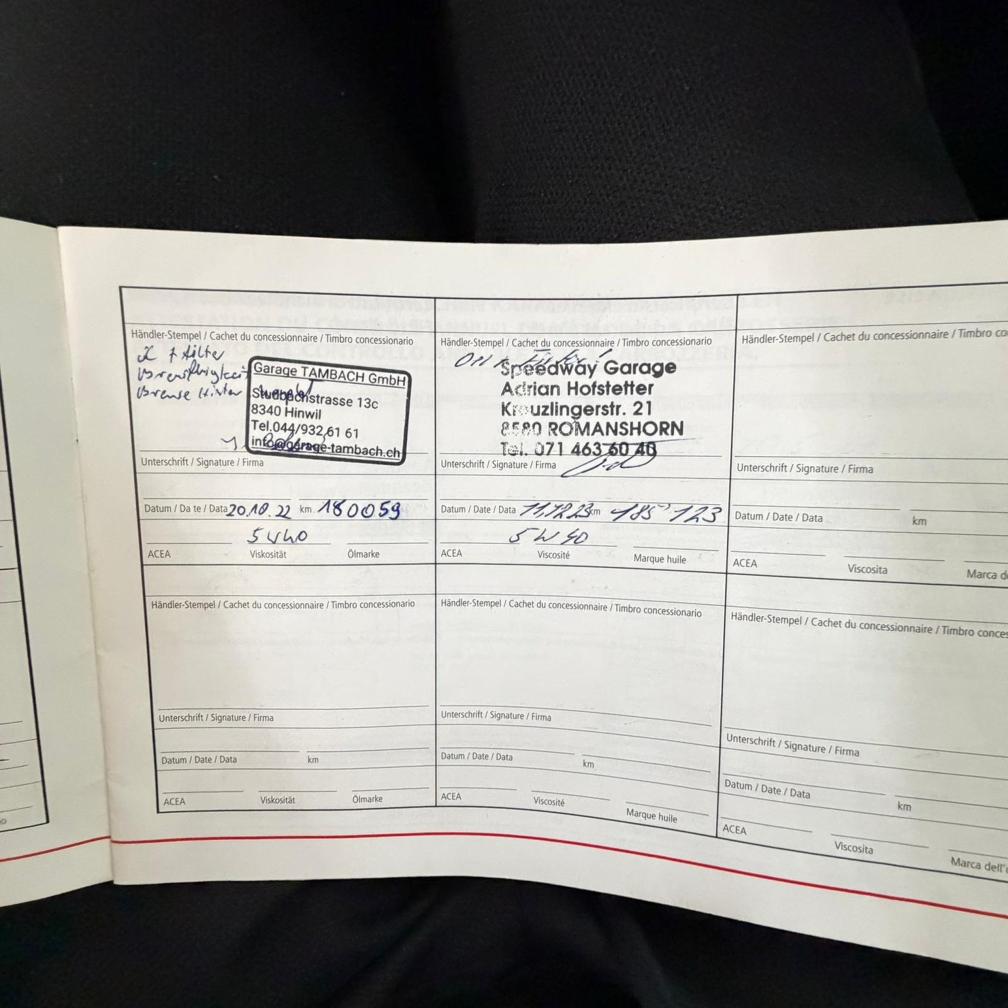 Händler-Stempel / Cachet du concessionnaire / Timbro concessionario
+ Filter
Garage TAMBACH GmbH
8340 Hinwil
Tel.044/932 61 61
info@garage-tambach.ch
Unterschrift / Signature / Firma
Datum / Date / Data 20.10.22 km 180059
5W40
ACEA Viskosität Ölmarke
Händler-Stempel / Cachet du concessionnaire / Timbro concessionario
Speedway Garage
Adrian Hofstetter
Kreuzlingerstr. 21
8580 ROMANSHORN
Tel. 071 463 60 40
Unterschrift / Signature / Firma
Datum / Date / Data 11.12.23 km 185'123
5W40
ACEA Viscosité Marque huile
Händler-Stempel / Cachet du concessionnaire / Timbro
Unterschrift / Signature / Firma
Datum / Date / Data km
ACEA Viscosita Marca
Händler-Stempel / Cachet du concessionnaire / Timbro concessionario
Unterschrift / Signature / Firma
Datum / Date / Data km
ACEA Viskosität Ölmarke
Händler-Stempel / Cachet du concessionnaire / Timbro concessionario
Unterschrift / Signature / Firma
Datum / Date / Data km
ACEA Viscosité Marque huile
Händler-Stempel / Cachet du concessionnaire / Timbro
Unterschrift / Signature / Firma
Datum / Date / Data km
ACEA Viscosita Marca